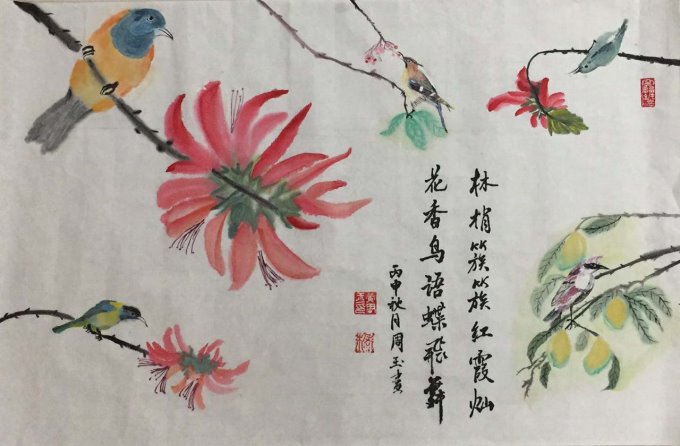 林梢簇簇红霞灿
花香鸟语蝶飛舞
丙申秋月周玉